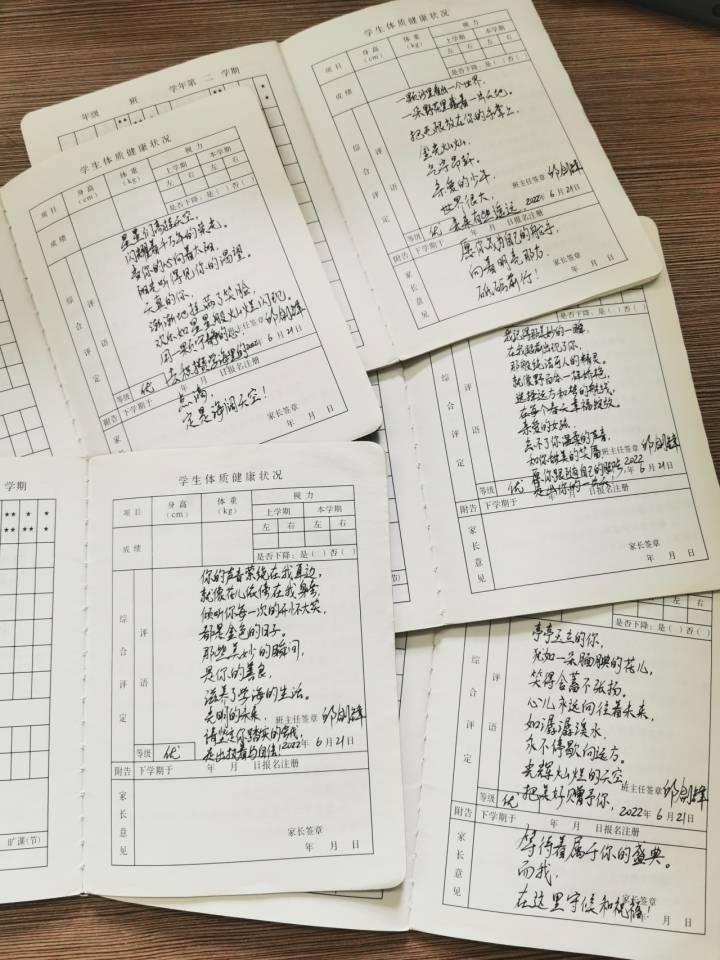 年级 班 学年第 二 学期
学生体质健康状况
项目 身高(cm) 体重(kg) 视力
上学期 本学期
左 右 左 右
是否下降:是( )否( )
成绩
综合评定
评语
一颗沙里看出一个世界,
一朵野花里藏着一片天地。
把无限放在你的手掌上,
金光灿灿,
气宇昂轩。
亲爱的少年,
世界很大,
未来有些遥远,
班主任签章
2022年 6月21日
等级 优
附告 下学期于 年 月 日报名注册
愿你成为自己的船手,
向着明亮那方,
砥砺前行!
家长意见
家长签章
年 月 日
学生体质健康状况
项目 身高(cm) 体重(kg) 视力
上学期 本学期
左 右 左 右
是否下降:是( )否( )
成绩
综合评定
评语
星星们高挂天空,
闪耀着千万年的荣光。
看你的心向着太阳,
阳光听得见你的
天真的你,
渐渐地挂满了笑脸,
次次如星星般火灿烂闪现。
用一颗不
班主任签章
2022年 6月21日
等级 优
去
附告 下学期于 年 月 日报名注册
点滴,
定是海阔天空!
家长
家长签章
年 月 日
是否下降:是( )否( )
综合评定
评语
我记得那美妙的一瞬,
在我眼前出现了你,
那般纯洁可人的精灵。
就像野百合一径娇艳,
迎接远方和梦的挑战,
在每个春天幸福绽放。
亲爱的女孩,
忘不了你温柔的声音,
如你甜美的笑靥
班主任签章
愿你跟随自己的脚步,
2022年 6月21日
等级 优
附告 下学期于 年 月 日报名注册
家长意见
家长签章
年 月 日
学期
学生体质健康状况
项目 身高(cm) 体重(kg) 视力
上学期 本学期
左 右 左 右
是否下降:是( )否( )
成绩
综合评定
评语
你的声音萦绕在我耳边,
就像花儿依偎在我身旁,
倾听你每一次的开怀大笑,
都是金色的日子。
那些美妙的瞬间,
是你的善良,
滋养了学海的生活。
光明的未来,
班主任签章
请坚定你踏实的步伐,
走出执着与自信!
2022年 6月21日
等级 优
附告 下学期于 年 月 日报名注册
家长意见
家长签章
年 月 日
旷课(节)
是否下降:是( )否( )
综合评定
评语
亭亭玉立的你,
犹如一朵腼腆的花儿,
笑得含蓄不张扬。
心儿永远向往着未来,
如潺潺溪水,
永不停歇向远方。
光辉灿烂的天空,
班主任签章
把美好赠予你,
2022年 6月21日
等级 优
附告 下学期于 年 月 日报名注册
等待着属于你的盛典。
而我,
在这里守候和祝福!
家长意见
家长签章
年 月 日